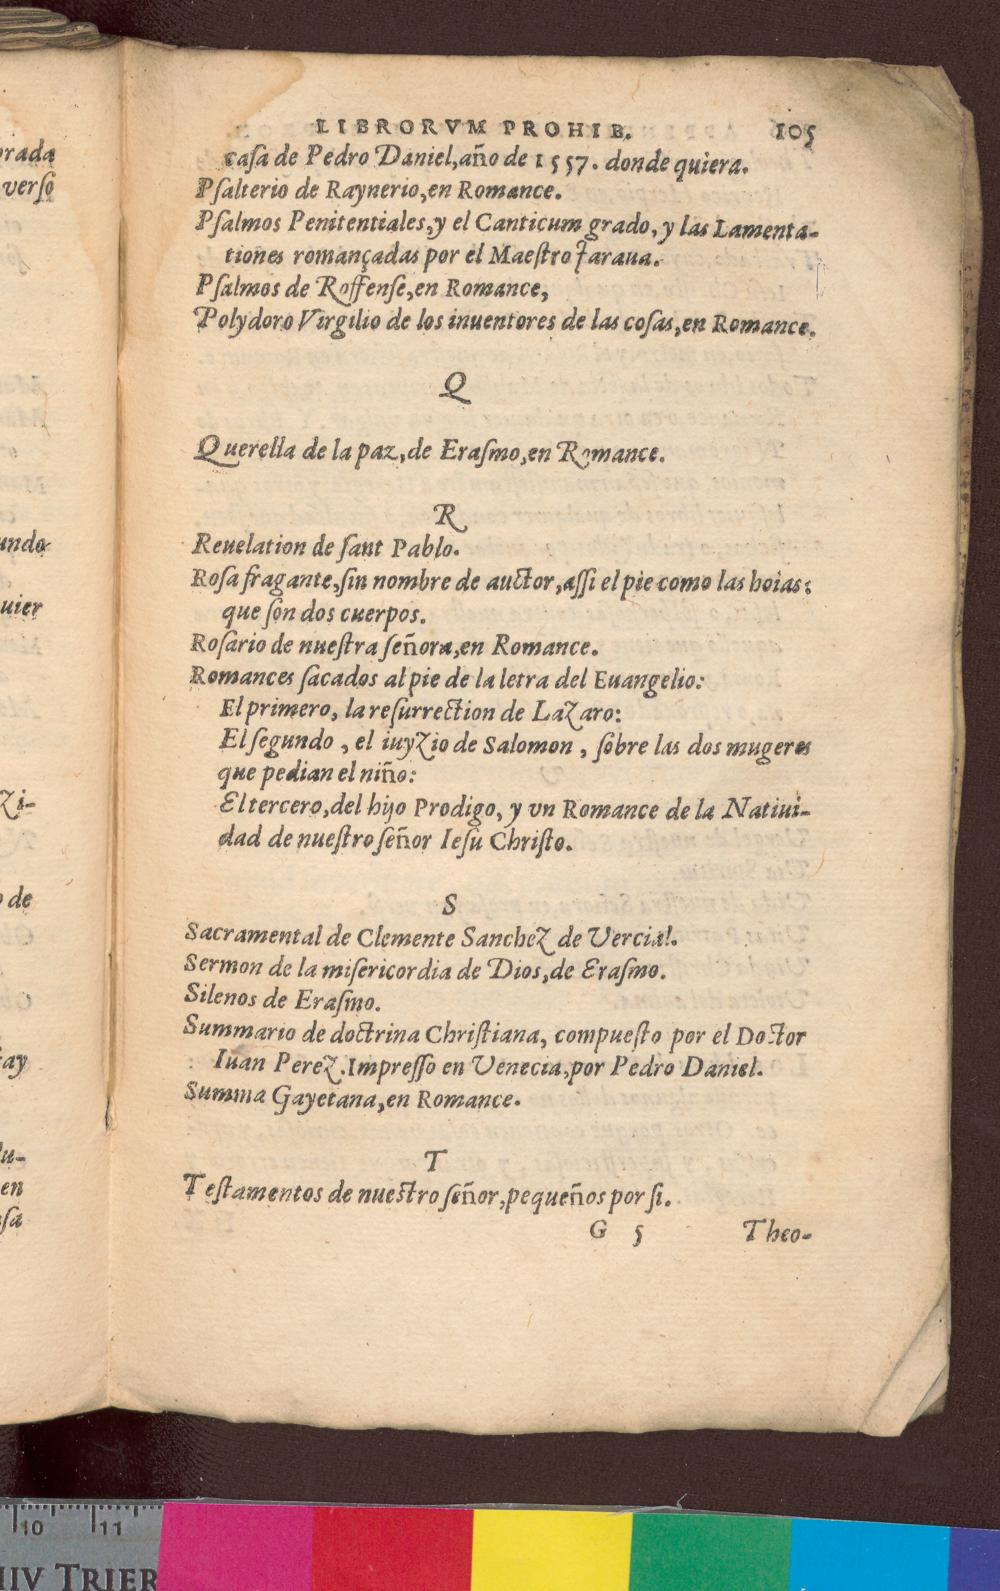 LIBRORVM PROHIB. 105
casa de Pedro Daniel, año de 1557. donde quiera.
Psalterio de Raynerio, en Romance.
Psalmos Penitentiales, y el Canticum grado, y las Lamenta-
tiones romançadas por el Maestro Jaraua.
Psalmos de Roffense, en Romance,
Polydoro Virgilio de los inuentores de las cosas, en Romance.
Q
Querella de la paz, de Erasmo, en Romance.
R
Reuelation de sant Pablo.
Rosa fragante, sin nombre de auctor, assi el pie como las hoias:
que son dos cuerpos.
Rosario de nuestra señora, en Romance.
Romances sacados al pie de la letra del Euangelio:
El primero, la resurrection de Lazaro:
El segundo, el iuyzio de Salomon, sobre las dos mugeres
que pedian el niño:
El tercero, del hijo Prodigo, y vn Romance de la Natiui-
dad de nuestro señor Iesu Christo.
S
Sacramental de Clemente Sanchez de Vercial.
Sermon de la misericordia de Dios, de Erasmo.
Silenos de Erasmo.
Summario de doctrina Christiana, compuesto por el Doctor
Iuan Perez. Impresso en Venecia, por Pedro Daniel.
Summa Gayetana, en Romance.
T
Testamentos de nuestro señor, pequeños por si.
G 5 Theo-
verso
undo
uier
zi-
de
lu-
en
10 11
TRIER